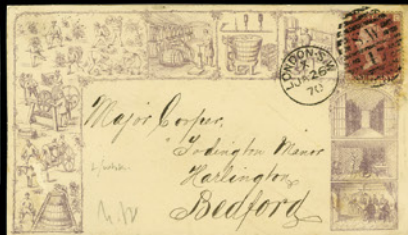 LONDON·S.W
X
JA 26
70
S.W
1
Major Cooper,
Todington Manor
Harlington
Bedford